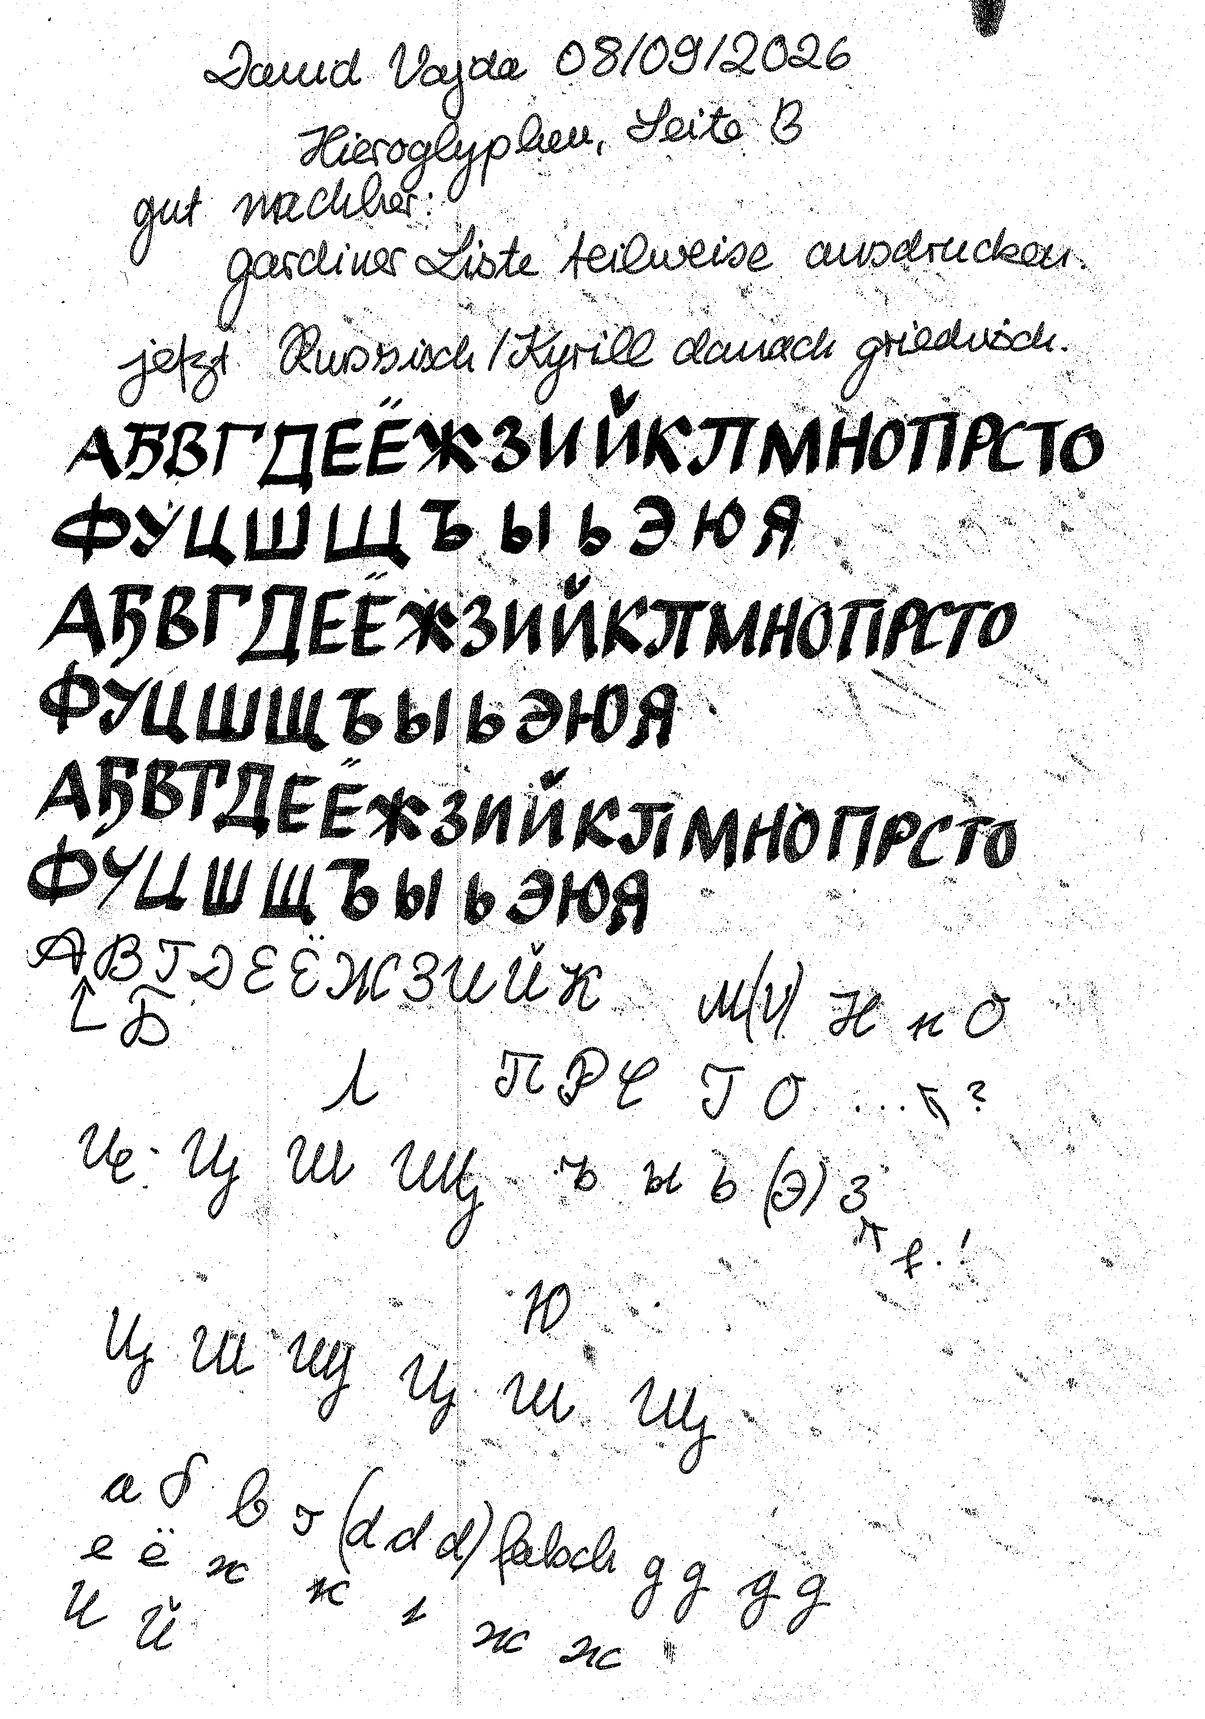 David Vajda 08/09/2026
Hieroglyphen, Seite B
gut nachher:
gardiner Liste teilweise ausdrucken.
jetzt Russisch/Kyrill danach griechisch.
АБВГДЕЁЖЗИЙКЛМНОПРСТО
ФУЦШЩЪЫЬЭЮЯ
АБВГДЕЁЖЗИЙКЛМНОПРСТО
ФУЦШЩЪЫЬЭЮЯ
АБВГДЕЁЖЗИЙКЛМНОПРСТО
ФУЦШЩЪЫЬЭЮЯ
АВГДЕЁЖЗИЙК М(И) Н н О
Б
Л ПРС Т О ... ?
Ц Ш Щ ъ ы ь (Э) З
f. !
Ю
Ц Ш Щ Ц Ш Щ
а б в г (d d d) falsch g g g g
е ё ж ж ж ж
И Й